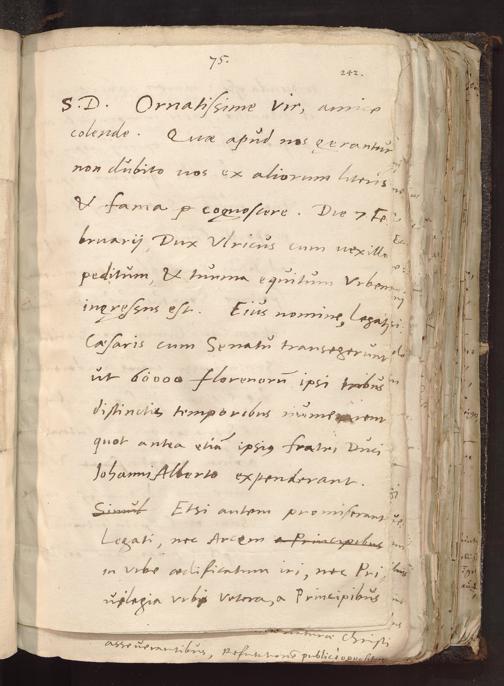 75.
242.
S.D. Ornatissime vir, amice
colende. Quae apud nos gerantur
non dubito vos ex aliorum literis
& fama p cognoscere. Die 7 Fe
bruarij Dux Ulricus cum vexillo
peditum, & turma equitum Urbem
ingressus est. Eius nomine, Legati
Caesaris cum Senatu transegerunt
ut 60000 florenorũ ipsi tribus
distinctis temporibus numerarent
quot antea etiã ipsiq fratri Duci
Iohanni Alberto expenderant.
Simul Etsi autem promiserant
Legati, nec Arcem a Principibus
in urbe aedificatum iri, nec Pri,
vilegia urbis vetera, a Principibus
Christi
asseverantibus,